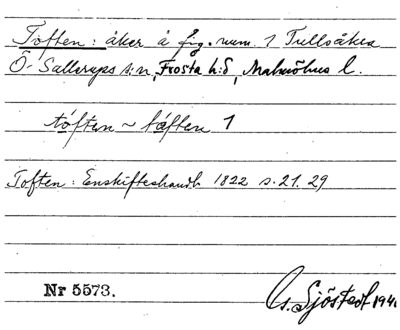 Toften: åker å fig. num. 1 Tullsåkra
Ö. Sallerups s:n, Frosta h:d, Malmöhus l.
tóften ~ táften 1
Toften: Enskifteshandl. 1822 s. 21. 29
Nr 5573.
G. Sjöstedt 194